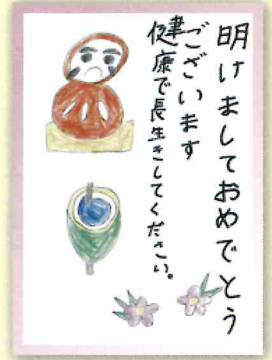 明けましておめでとう
ございます
健康で長生きしてください。